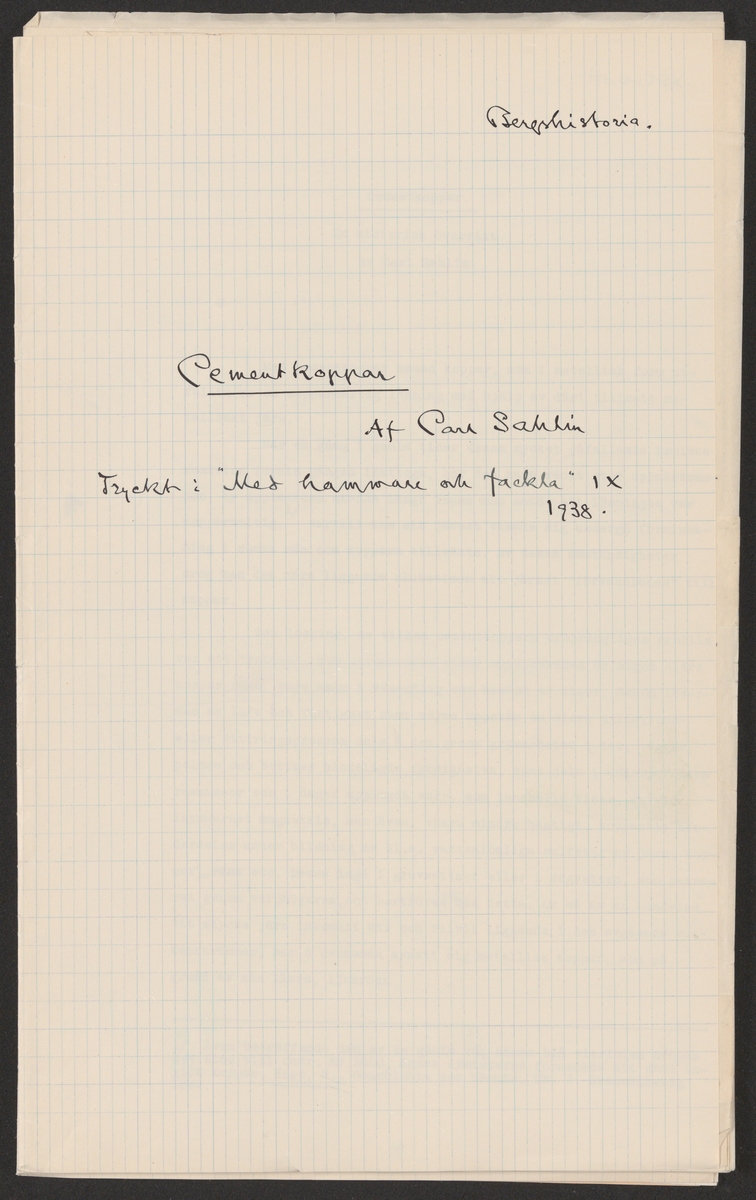 Bergshistoria.
Cementkoppar
Af Carl Sahlin
Tryckt i "Med hammare och fackla" IX
1938.